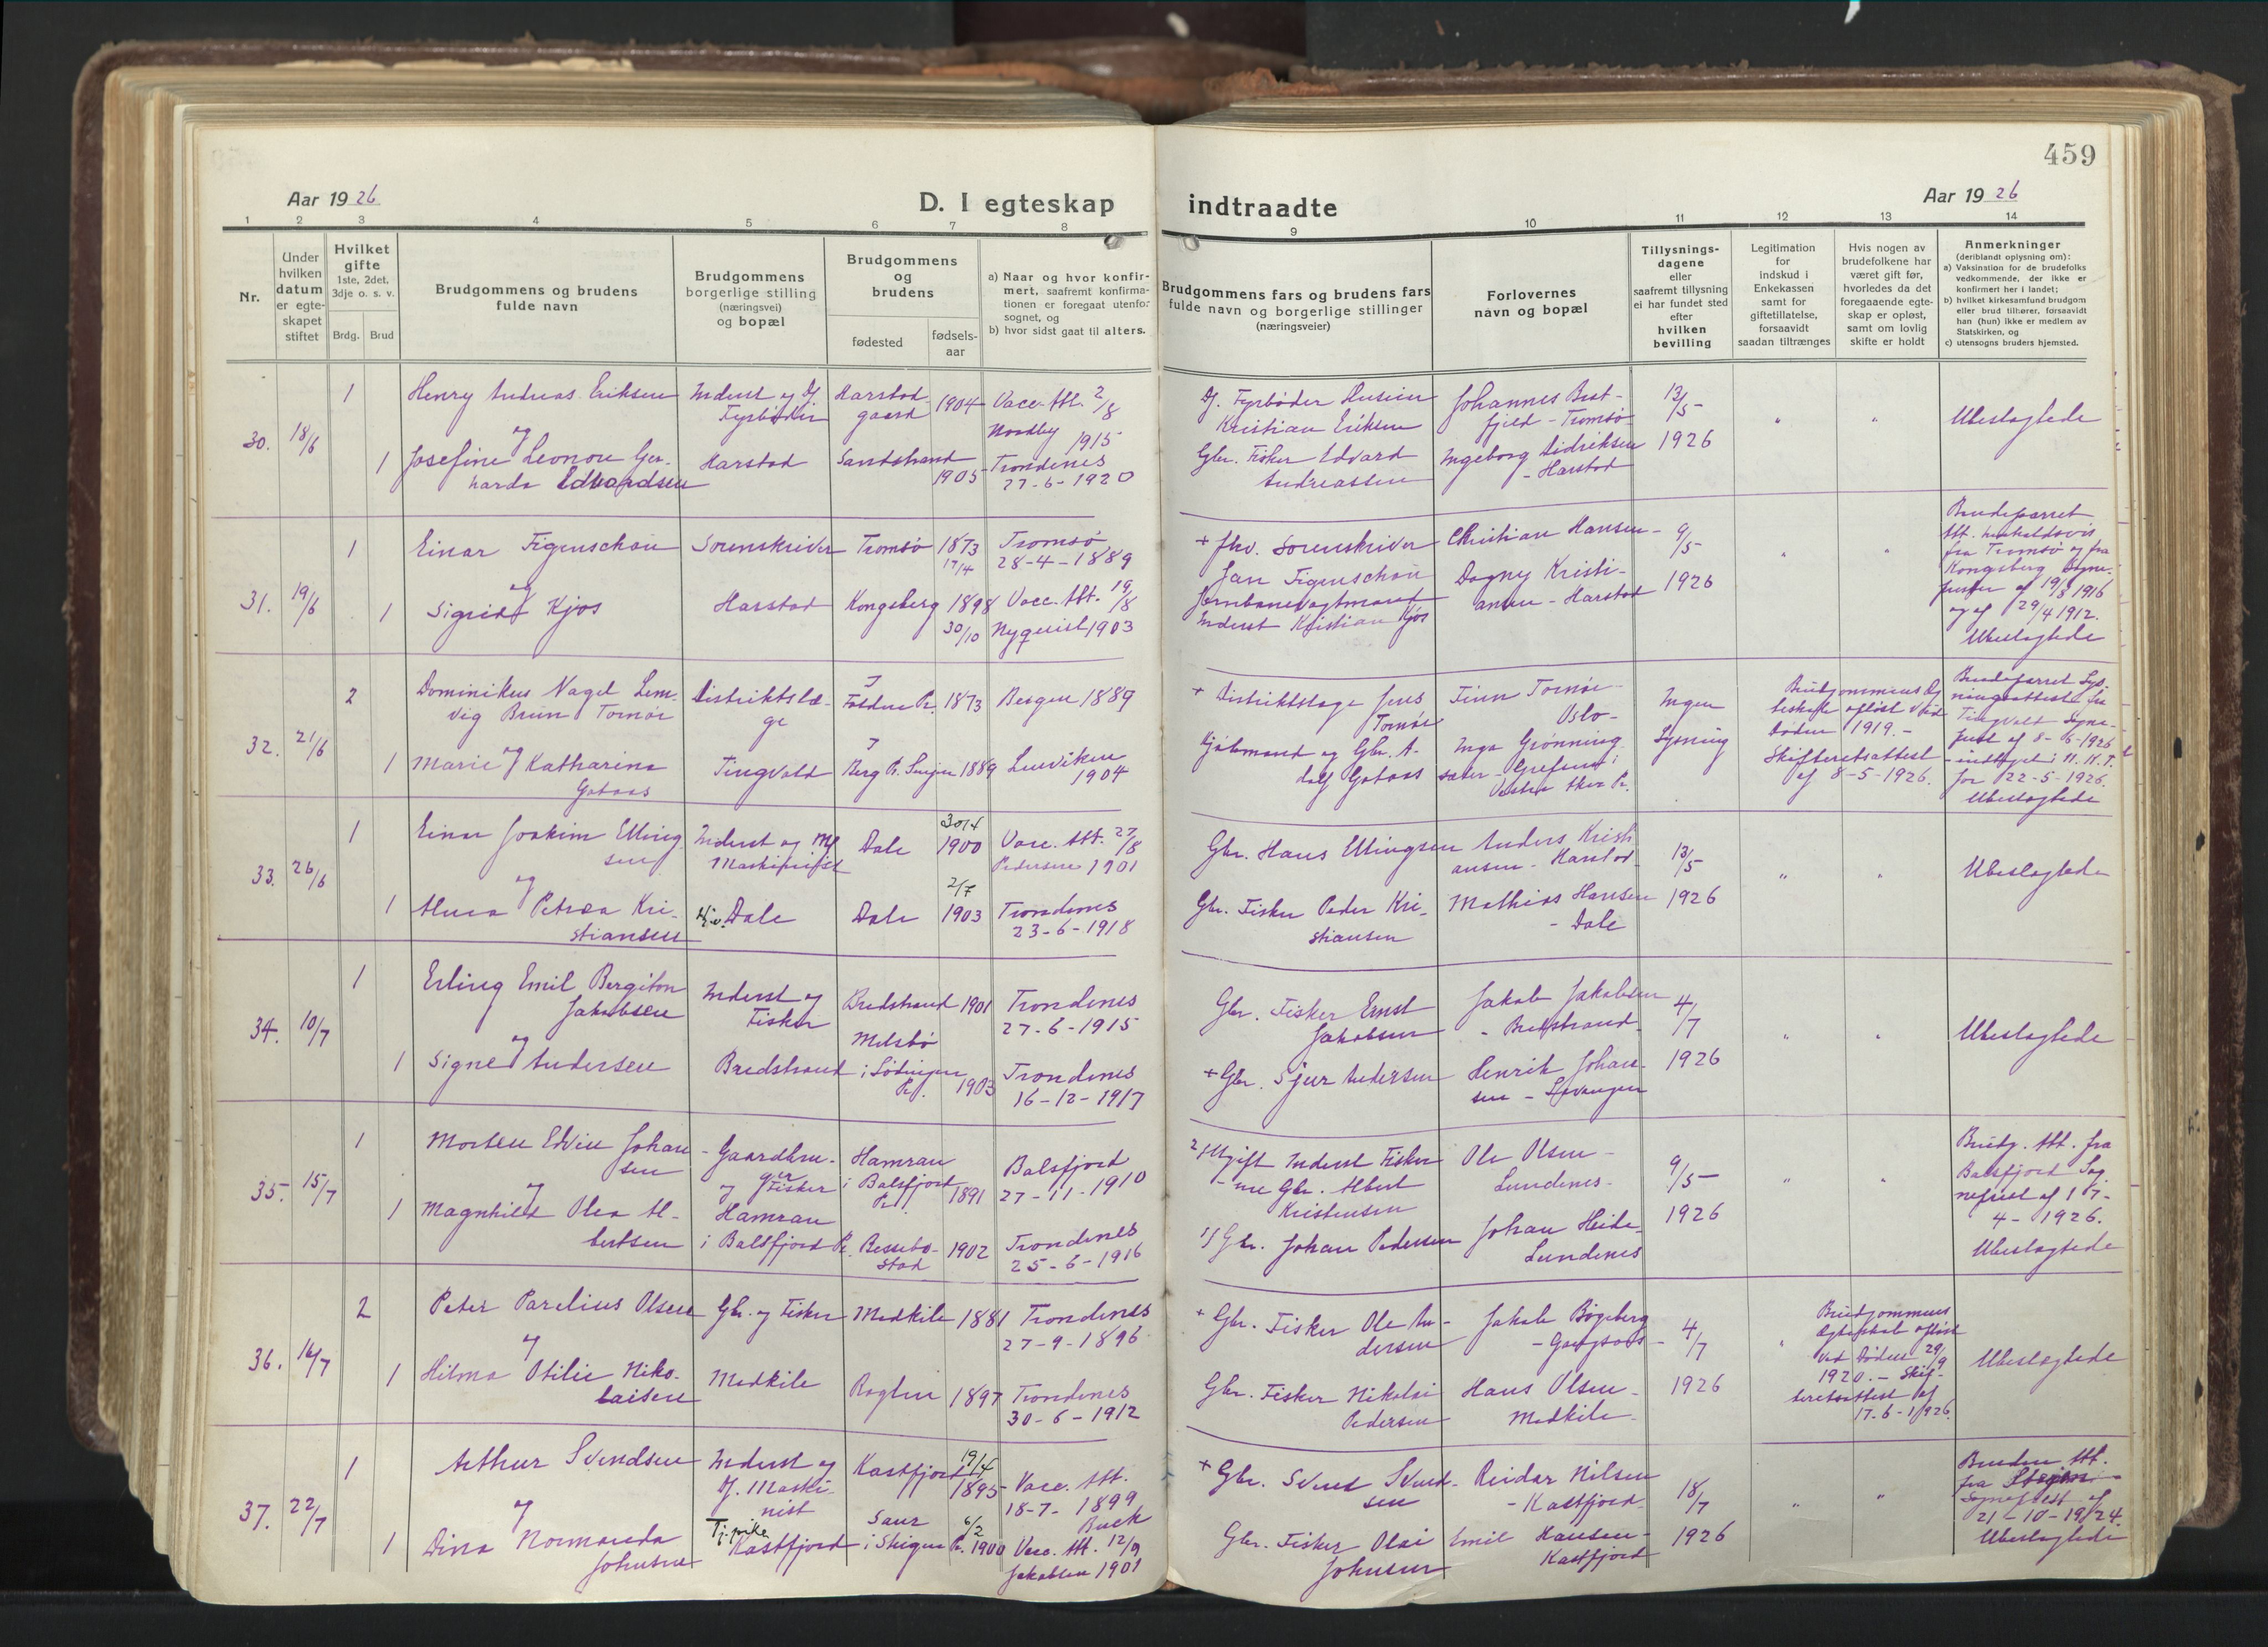 459
Aar 1926
D. I egteskap
indtraadte
Aar 1926
1 2 3 4 5 6 7 8 9 10 11 12 13 14
Nr.
Under
hvilken
datum
er egte-
skapet
stiftet
Hvilket
gifte
1ste, 2det,
3dje o. s. v.
Brdg. Brud
Brudgommens og brudens
fulde navn
Brudgommens
borgerlige stilling
(næringsvei)
og bopæl
Brudgommens
og
brudens
fødested
fødsels-
aar
a) Naar og hvor konfir-
mert, saafremt konfirma-
tionen er foregaat utenfor
sognet, og
b) hvor sidst gaat til alters.
Brudgommens fars og brudens fars
fulde navn og borgerlige stillinger
(næringsveier)
Forlovernes
navn og bopæl
Tillysnings-
dagene
eller
saafremt tillysning
ei har fundet sted
efter
hvilken
bevilling
Legitimation
for
indskud i
Enkekassen
samt for
giftetillatelse,
forsaavidt
saadan tiltrænges
Hvis nogen av
brudefolkene har
været gift før,
hvorledes da det
foregaaende egte-
skap er opløst,
samt om lovlig
skifte er holdt
Anmerkninger
(deriblandt oplysning om):
a) Vaksination for de brudefolks
vedkommende, der ikke er
konfirmert her i landet;
b) hvilket kirkesamfund brudgom
eller brud tilhører, forsaavidt
han (hun) ikke er medlem av
Statskirken, og
c) utensogns bruders hjemsted.
30. 18/6
1 Henry Andreas Eriksen
Inderst og
Fyrbøder
Harstad
gaard
1904
Vacc. Att. 2/8
Nordby 1915
og
1 Josefine Leonore Ger-
harda Edvardsen
Harstad
Sandstrand
1905
Trondenes
27-6-1920
Fyrbøder
Kristian Eriksen
Gbr. Fisker Edvard
Andreassen
Johannes Brat-
fjeld - Tromsø
Ingeborg Didriksen
- Harstad
13/5-
1926
Ubeslægtede
31. 19/6
1 Einar Figenschou
Sorenskriver
Tromsø
1873
17/4
Tromsø
28-4-1889
og
1 Sigrid Kjos
Harstad
Kongsberg
1898
30/10
Vacc. Att. 19/8
Nyquist 1903
+ fhv. Sorenskriver
Jan Figenschou
Inderst Kristian Kjos
Christian Hansen
Dagny Kristi-
ansen - Harstad
9/5-
1926
Brudeparret
fra Tromsø og fra
Kongsberg
af 19/3 1916
og af 29/4 1912.
Ubeslægtede
32. 21/6
2 Dominikus Nagel Lem-
vig Brun Tornøe
Distriktslæ-
ge
1873
Bergen 1889
og
1 Marie Katharina
Gotaas
Tingvold
Berg Pr. Senjen
1889
Lenviken
1904
+ Distriktslæge Jens
Tornøe
Kjøbmand og Gbr. A-
dolf Gotaas
Finn Tornøe
Oslo
Inga Grønning
sæter - Grefsen i
Vestre Aker Pr.
Ingen
Lysning
Brudgommens Eg
teskab opløst ved
Døden 1919.-
Skifteretsattest
af 8-5-1926.
Brudeparret Lys
ningsattest fra
Tingvold Sogne-
prest af 8-6-1926
indtaget i N.K.T.
for 22-5-1926.
Ubeslægtede
33. 26/6
1 Einar Joakim Elling
sen
Inderst og
Dale
30/4
1900
Vacc. Att. 27/8
Pedersen 1901
og
1 Anna Petrea Kri-
stiansen
Dale
Dale
2/7
1903
Trondenes
23-6-1918
Gbr. Hans Ellingsen
Gbr. Fisker Peder Kri-
stiansen
Anders Kristi
ansen - Harstad
Mathias Hansen
- Dale
13/5
1926
Ubeslægtede
34. 10/7
1 Erling Emil Bergiton
Jakobsen
Inderst og
Fisker
Bredstrand
1901
Trondenes
27-6-1915
og
1 Signe Andersen
Bredstrand
Melsbø
i Lødingen
Pr.
1903
Trondenes
16-12-1917
Gbr. Fisker Ernst
Jakobsen
+ Gbr. Sjur Andersen
Jakob Jakobsen
- Bredstrand
Henrik Johan-
sen -
4/7
1926
Ubeslægtede
35. 15/7
1 Morten Edvin Johan
sen
Gaardbru-
ger
og Fisker
Hamran
i Balsfjord
Pr.
1891
Balsfjord
27-11-1910
og
1 Magnhild Olea Al-
bertsen
Hamran
i Balsfjord Pr.
Bessebo-
stad
1902
Trondenes
25-6-1916
2) Ugift Inderst Fisker
nu Gbr. Albert
Kristensen
1) Gbr. Johan Pedersen
Ole Olsen -
Lundenes
Johan Heide
Lundenes
9/5-
1926
Brudg. Att. fra
Balsfjord Sog
neprest af 17-
4-1926.
Ubeslægtede
36. 16/7
2 Peter Parelius Olsen
Gbr. og Fisker
Medkile
1881
Trondenes
27-9-1896
og
1 Hilma Otilie Niko-
laisen
Medkile
1897
Trondenes
30-6-1912
+ Gbr. Fisker Ole An-
dersen
Gbr. Fisker Nikolai
Pedersen
Jakob Bogsberg
Hans Olsen -
Medkile
4/7
1926
Brudgommens
Egteskab opløst
ved Døden 29/9
1920.- Skif-
teretsattest af
17-6-1926
Ubeslægtede
37. 22/7
1 Arthur Svendsen
Inderst og
Maski
nist
Kastfjord
19/4
1895
Vacc. Att.
18-7-1899
Buck
og
1 Dina Normanda
Johnsen
Tj. pike
Kastfjord
i Steigen Pr.
6/2
1900
Vacc. Att. 12/9
Jakobsen 1901
+ Gbr. Svend Svend-
sen
Gbr. Fisker Olai
Johnsen
Reidar Nilsen
- Kastfjord
Emil Hansen -
Kastfjord
18/7
1926
Bruden Att.
fra
Sogneprest af
21-10-1924.
Ubeslægtede